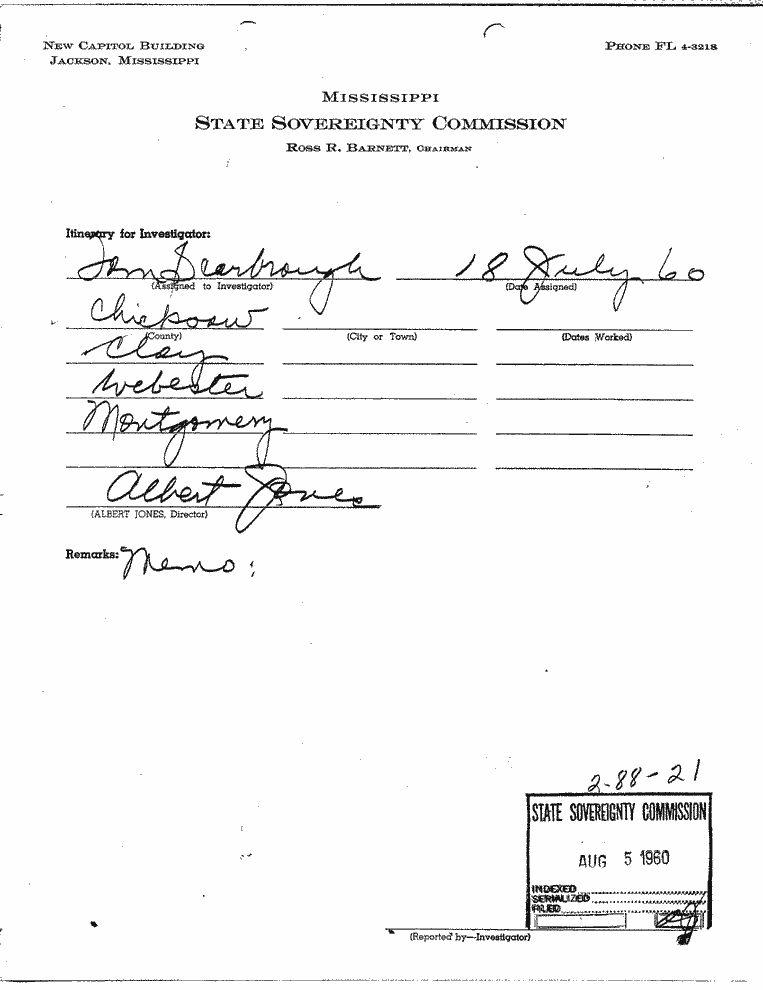 NEW CAPITOL BUILDING
JACKSON, MISSISSIPPI
PHONE FL 4-3218
MISSISSIPPI
STATE SOVEREIGNTY COMMISSION
ROSS R. BARNETT, CHAIRMAN
Itinerary for Investigator:
Tom Scarbrough 18 July 60
(Assigned to Investigator) (Date Assigned)
Chickosaw
(County) (City or Town) (Dates Worked)
Clay
Webester
Montgomery
Albert Jones
(ALBERT JONES, Director)
Remarks: Memo:
2-88-21
STATE SOVEREIGNTY COMMISSION
AUG 5 1960
INDEXED
SERIALIZED
FILED
(Reported by—Investigator)